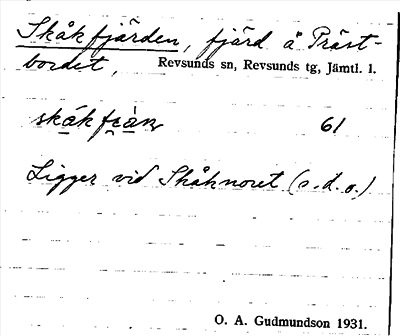 Skåkfjärden, fjärd å Präst-
bordet, Revsunds sn, Revsunds tg, Jämtl. l.
61
Ligger vid Skåknoret (s.d.o.)
O. A. Gudmundson 1931.